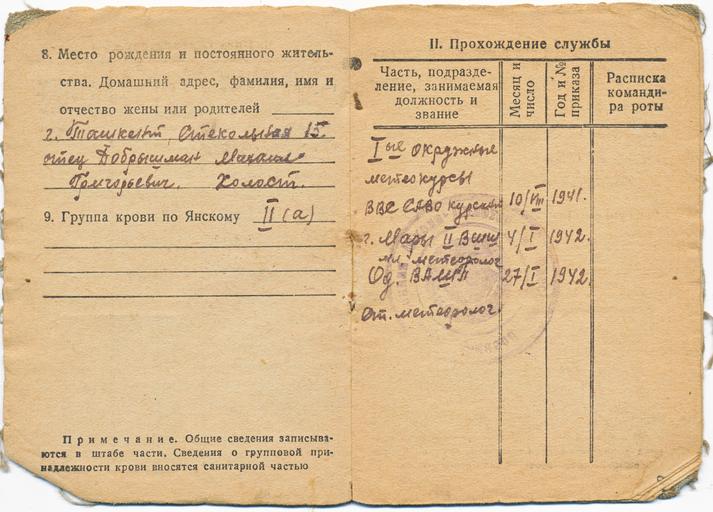 8. Место рождения и постоянного житель-
ства. Домашний адрес, фамилия, имя и
отчество жены или родителей
г. Ташкент, Стекольная 15.
отец Добрышман Михаил
Григорьевич. Холост.
9. Группа крови по Янскому II (а)
Примечание. Общие сведения записыва-
ются в штабе части. Сведения о групповой при-
надлежности крови вносятся санитарной частью
II. Прохождение службы
Часть, подразде-
ление, занимаемая
должность и
звание
Месяц и
число
Год и №
приказа
Расписка
команди-
ра роты
Iые окружные
метеокурсы
ВВС САВО курсант 10/VIII 1941.
г. Мары II 4/I 1942.
мл. метеоролог
Од ВАШП 27/I 1942.
ст. метеоролог.